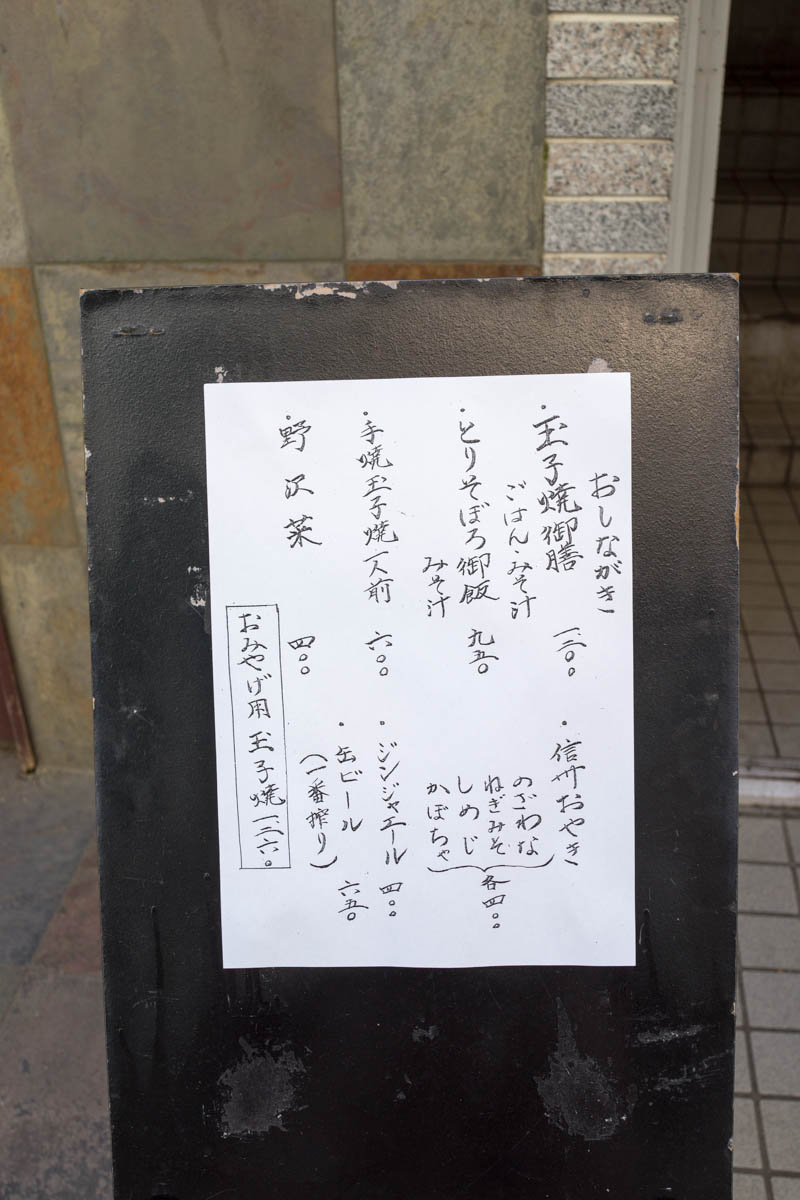 おしながき
・玉子焼御膳
ごはん・みそ汁
・とりそぼろ御飯 九五〇
みそ汁
・手焼玉子焼一人前 六〇〇
・野沢菜 四〇〇
・信州おやき
のざわな
ねぎみそ
しめじ
かぼちゃ
各四〇〇
・ジンジャエール 四〇〇
・缶ビール 六五〇
(一番搾り)
おみやげ用 玉子焼